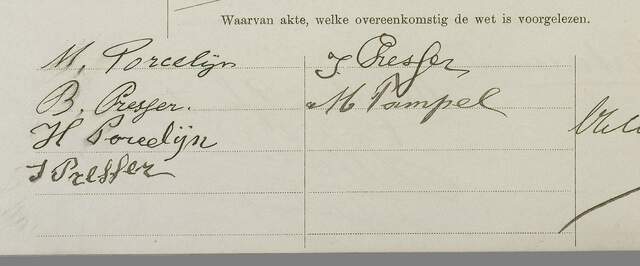 Waarvan akte, welke overeenkomstig de wet is voorgelezen.
M. Porcelijn
B. Presser.
H Porcelijn
J Presser
J. Presser
M Pampel